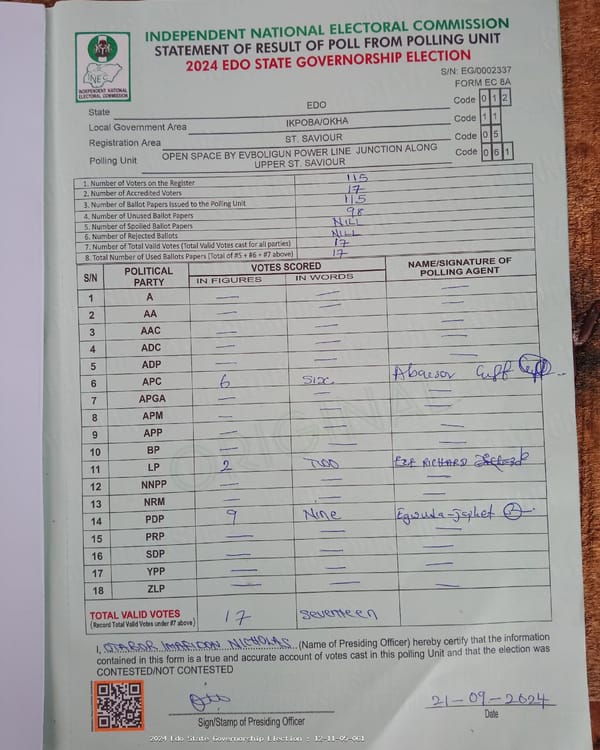 INDEPENDENT NATIONAL ELECTORAL COMMISSION
STATEMENT OF RESULT OF POLL FROM POLLING UNIT
2024 EDO STATE GOVERNORSHIP ELECTION
INEC
INDEPENDENT NATIONAL
ELECTORAL COMMISSION
S/N: EG/0002337
FORM EC 8A
State EDO Code 0 1 2
Local Government Area IKPOBA/OKHA Code 1 1
Registration Area ST. SAVIOUR Code 0 5
Polling Unit OPEN SPACE BY EVBOLIGUN POWER LINE JUNCTION ALONG UPPER ST. SAVIOUR Code 0 6 1
1. Number of Voters on the Register 115
2. Number of Accredited Voters 17
3. Number of Ballot Papers Issued to the Polling Unit 115
4. Number of Unused Ballot Papers 98
5. Number of Spoiled Ballot Papers NILL
6. Number of Rejected Ballots NILL
7. Number of Total Valid Votes (Total Valid Votes cast for all parties) 17
8. Total Number of Used Ballots Papers (Total of #5 + #6 + #7 above) 17
S/N POLITICAL PARTY VOTES SCORED NAME/SIGNATURE OF POLLING AGENT
IN FIGURES IN WORDS
1 A — — —
2 AA — — —
3 AAC — — —
4 ADC — — —
5 ADP — —
6 APC 6 Six
7 APGA — — —
8 APM — — —
9 APP — —
10 BP — — —
11 LP 2 TWO RICHARD
12 NNPP — — —
13 NRM — — —
14 PDP 9 Nine
15 PRP — — —
16 SDP — — —
17 YPP — — —
18 ZLP — — —
TOTAL VALID VOTES 17 Seventeen
(Record Total Valid Votes under #7 above)
ORIGINAL
I, NICHOLAS (Name of Presiding Officer) hereby certify that the information
contained in this form is a true and accurate account of votes cast in this polling Unit and that the election was
CONTESTED/NOT CONTESTED
21-09-2024
Sign/Stamp of Presiding Officer Date
2024 Edo State Governorship Election : 12-11-05-061